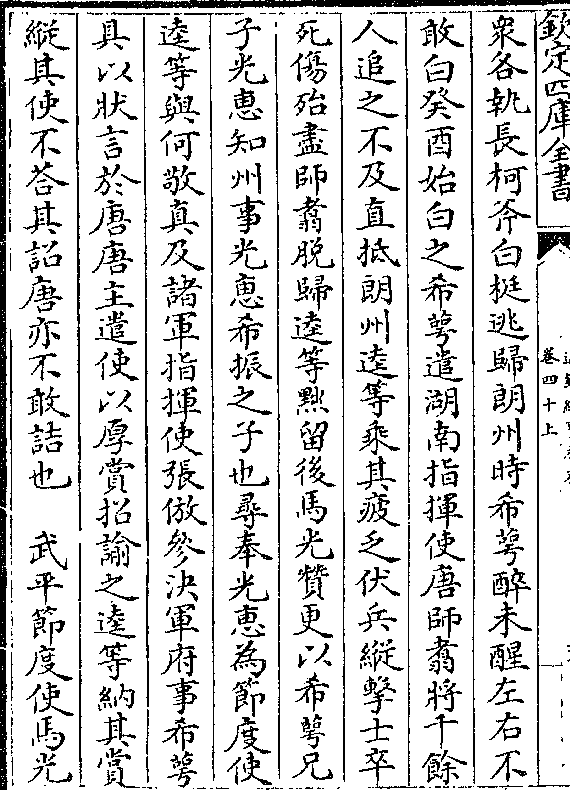 欽定四庫全書
卷四十上
衆各執長柯斧白挺逃歸朗州時希萼醉未醒左右不
敢白癸酉始白之希萼遣湖南指揮使唐師翥將千餘
人追之不及直抵朗州逵等乘其疲乏伏兵縱擊士卒
死傷殆盡師翥脫歸逵等黜留後馬光贊更以希萼兄
子光惠知州事光惠希振之子也尋奉光惠為節度使
逵等與何敬真及諸軍指揮使張倣參決軍府事希萼
具以狀言於唐唐主遣使以厚賞招諭之逵等納其賞
縱其使不荅其詔唐亦不敢詰也　武平節度使馬光